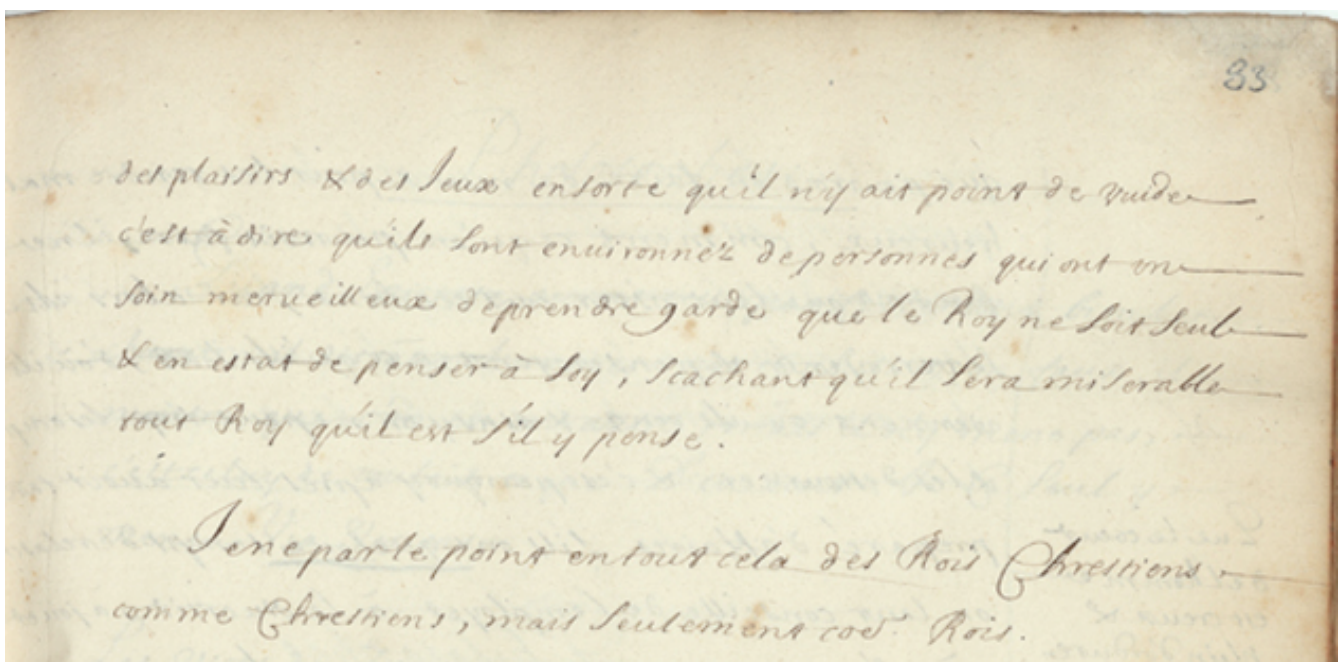 33
des plaisirs & des Jeux ensorte qu'il n'y ait point de vuide
c'est à dire qu'ils sont enuironnez de personnes qui ont vn
soin merveilleux de prendre garde que le Roy ne soit seul
& en estat de penser à soy, scachant qu'il sera miserable
tout Roy qu'il est s'il y pense.
Je ne parle point en tout cela des Rois Chrestiens
comme Chrestiens, mais seulement coe. Rois.